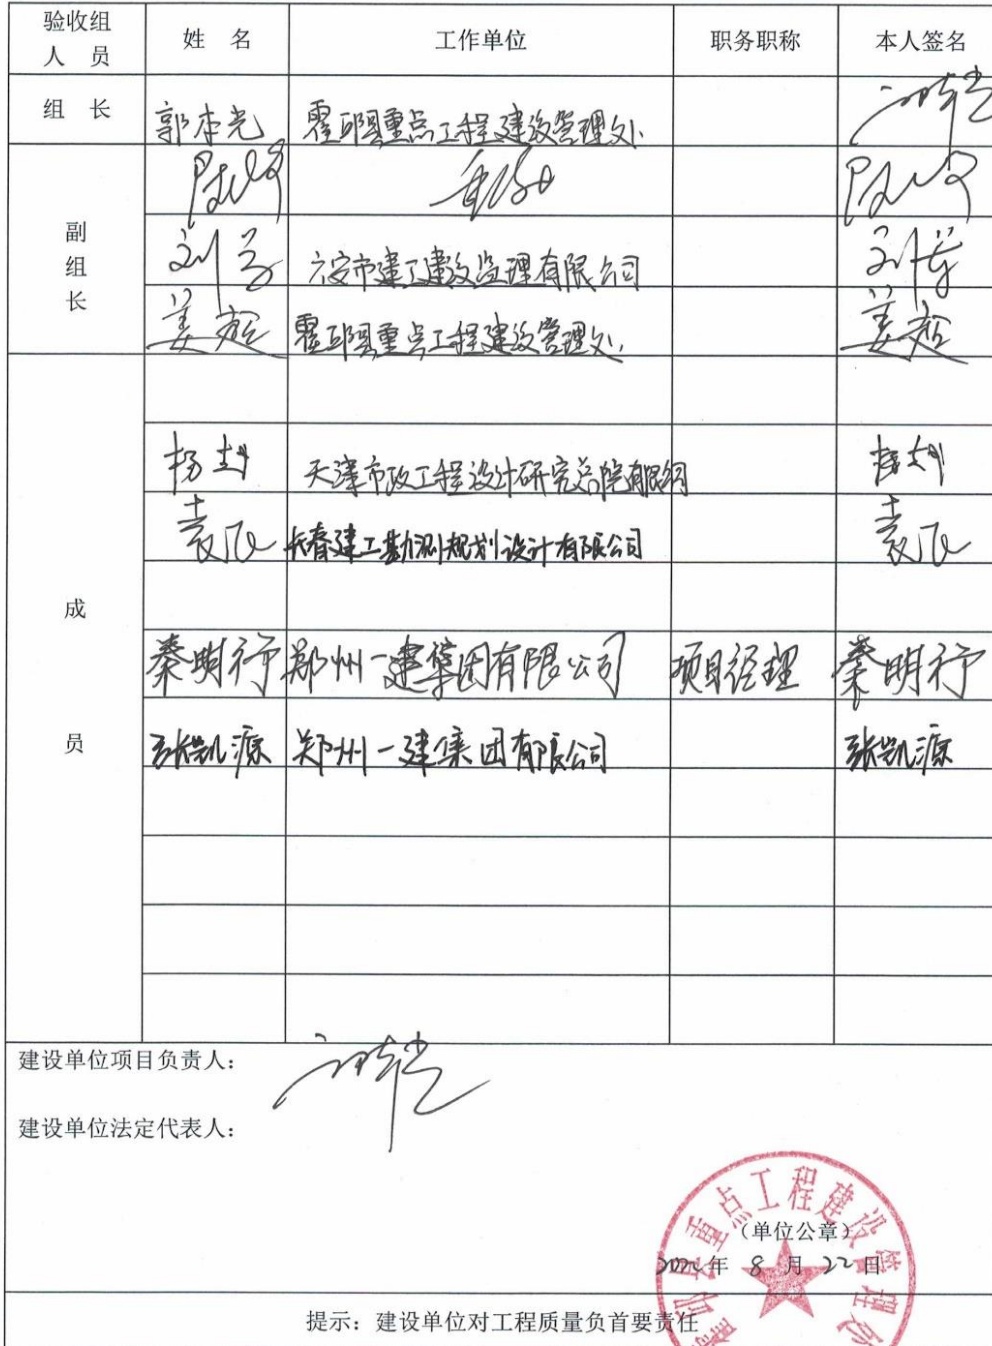 验收组
人 员
姓 名
工作单位
职务职称
本人签名
组 长
郭本光
霍邱县重点工程建设管理处
副
组
长
六安市建工建设监理有限公司
霍邱县重点工程建设管理处
成
员
天津市政工程设计研究总院有限公司
袁飞
长春建工勘测规划设计有限公司
袁飞
秦明行
郑州一建集团有限公司
项目经理
秦明行
张凯源
郑州一建集团有限公司
张凯源
建设单位项目负责人：
建设单位法定代表人：
霍邱县重点工程建设管理处
（单位公章）
2022年 8 月 22日
提示：建设单位对工程质量负首要责任